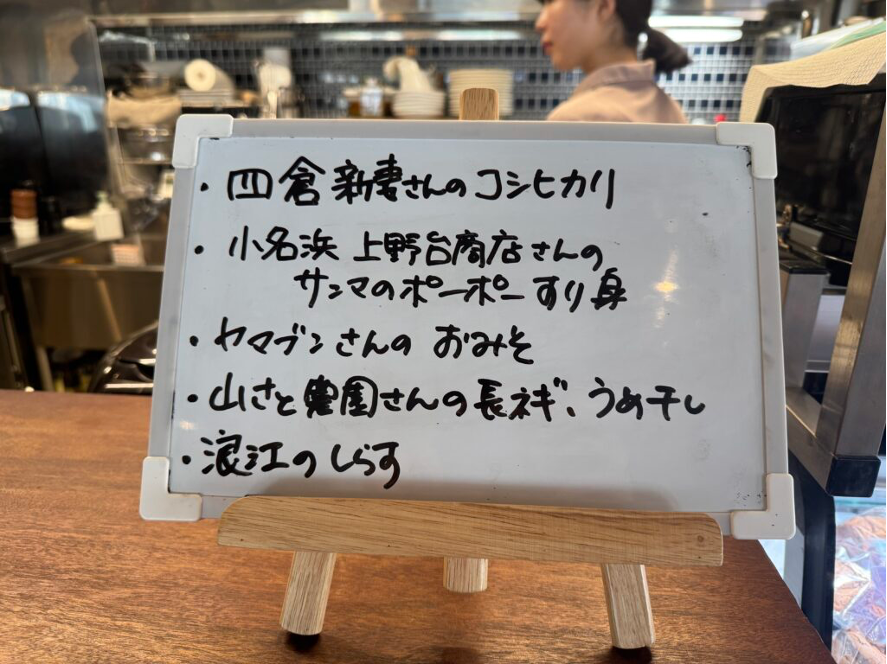 ・四倉 新妻さんのコシヒカリ
・小名浜 上野台商店さんの
サンマのポーポーすり身
・ヤマブンさんの おみそ
・山さと農園さんの長ネギ、うめ干し
・浪江のしらす